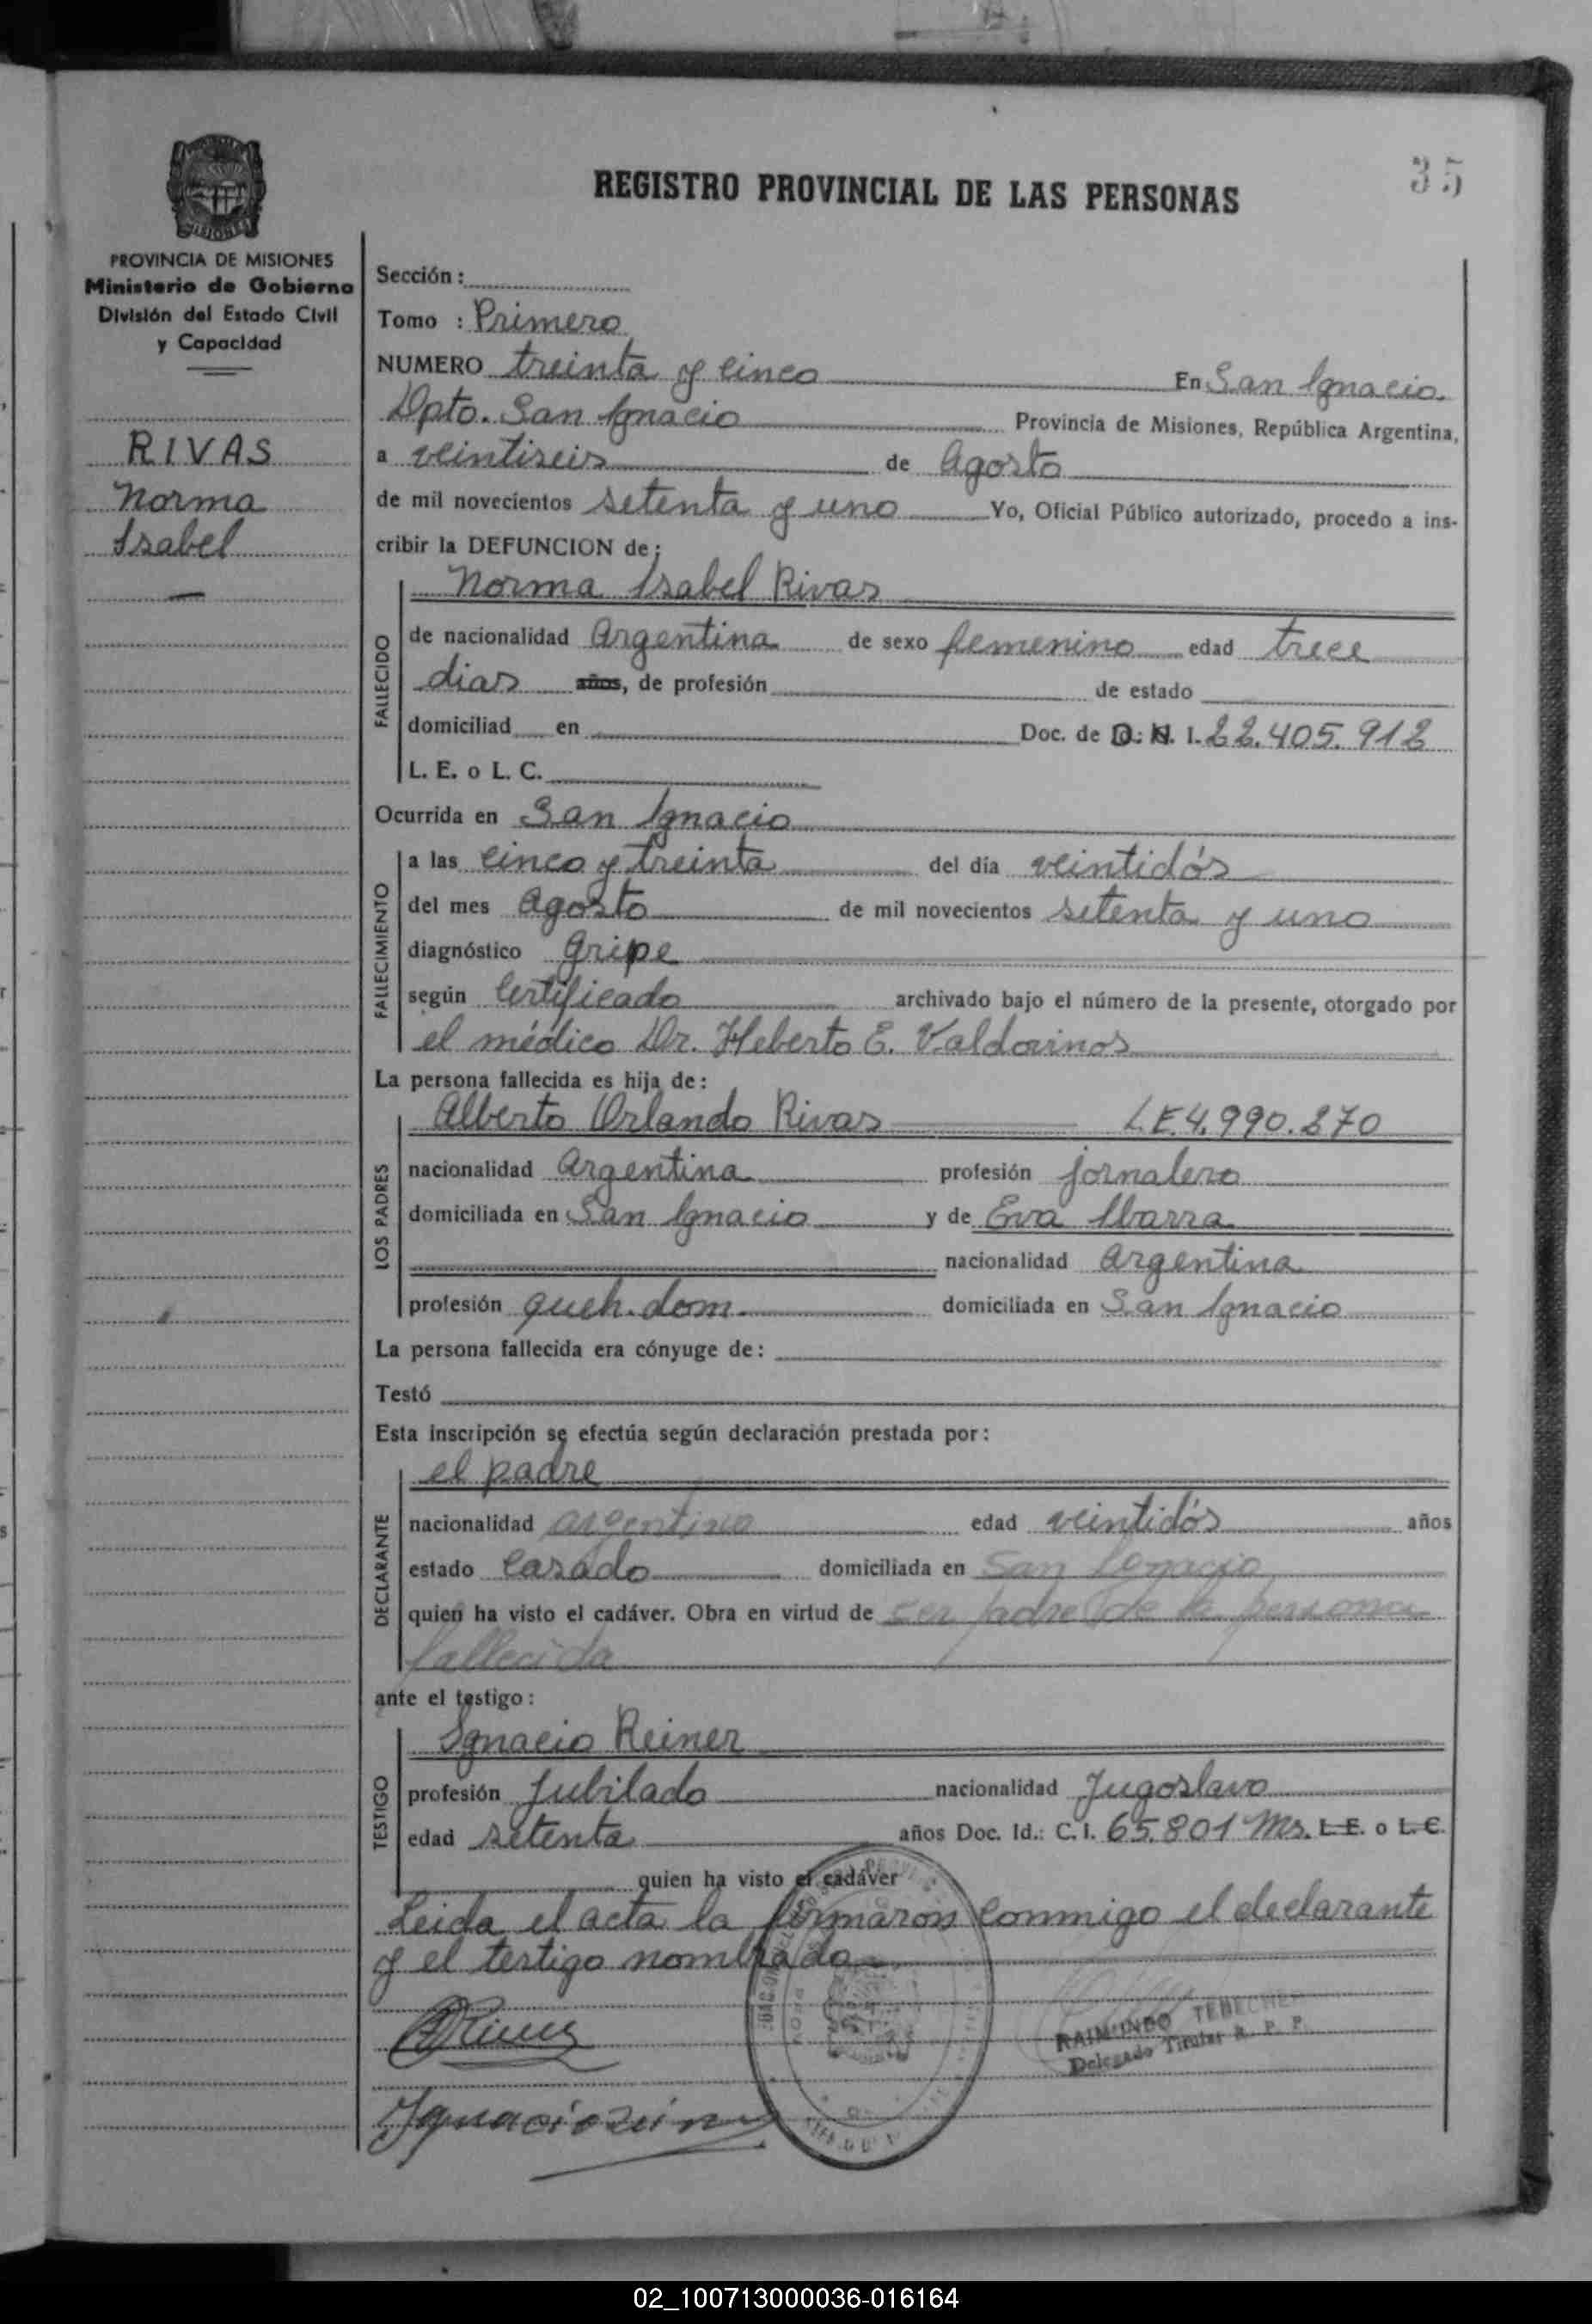 35
REGISTRO PROVINCIAL DE LAS PERSONAS
MISIONES
PROVINCIA DE MISIONES
Ministerio de Gobierno
División del Estado Civil
y Capacidad
RIVAS
Norma
Isabel
Sección:
Tomo : Primero
NUMERO treinta y cinco En San Ignacio
Dpto. San Ignacio Provincia de Misiones, República Argentina,
a veintiseis de Agosto
de mil novecientos setenta y uno Yo, Oficial Público autorizado, procedo a ins-
cribir la DEFUNCION de:
Norma Isabel Rivas
FALLECIDO
de nacionalidad Argentina de sexo femenino edad trece
dias años, de profesión de estado
domiciliad en Doc. de D. N. I. 22.405.912
L. E. o L. C.
Ocurrida en San Ignacio
FALLECIMIENTO
a las cinco y treinta del día veintidós
del mes Agosto de mil novecientos setenta y uno
diagnóstico gripe
según Certificado archivado bajo el número de la presente, otorgado por
el médico Dr. Heberto E. Valdovinos
La persona fallecida es hija de:
Alberto Orlando Rivas L.E.4.990.270
LOS PADRES
nacionalidad Argentina profesión jornalero
domiciliada en San Ignacio y de Eva Ibarra
nacionalidad Argentina
profesión queh. dom. domiciliada en San Ignacio
La persona fallecida era cónyuge de:
Testó
Esta inscripción se efectúa según declaración prestada por:
el padre
DECLARANTE
nacionalidad argentina edad veintidós años
estado Casado domiciliada en San Ignacio
quien ha visto el cadáver. Obra en virtud de ser padre de la persona
fallecida
ante el testigo:
Ignacio Reiner
TESTIGO
profesión Jubilado nacionalidad Jugoslavo
edad setenta años Doc. Id.: C. I. 65.801 Ms. L.E. o L.C.
quien ha visto el cadáver
Leida el acta la firmaron conmigo el declarante
y el testigo nombrado
RAIMUNDO
Delegado Titular R. P. P.
02_100713000036-016164